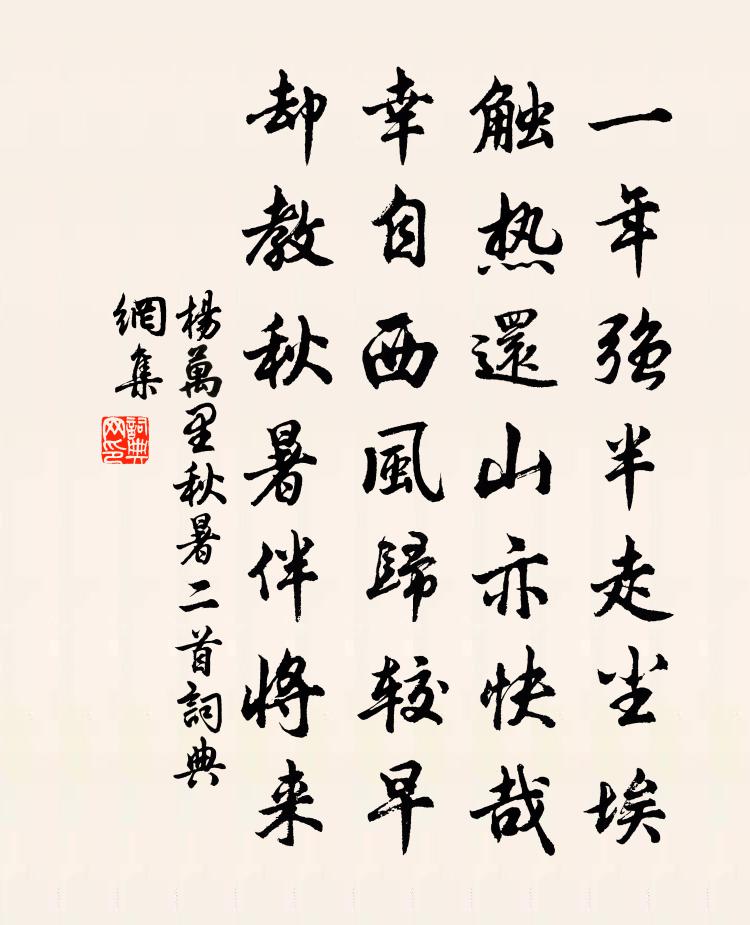 一年强半走尘埃
触热還山亦快哉
幸自西風歸较早
却教秋暑伴将来
楊萬里秋暑二首詞典
網集
詞典
网印